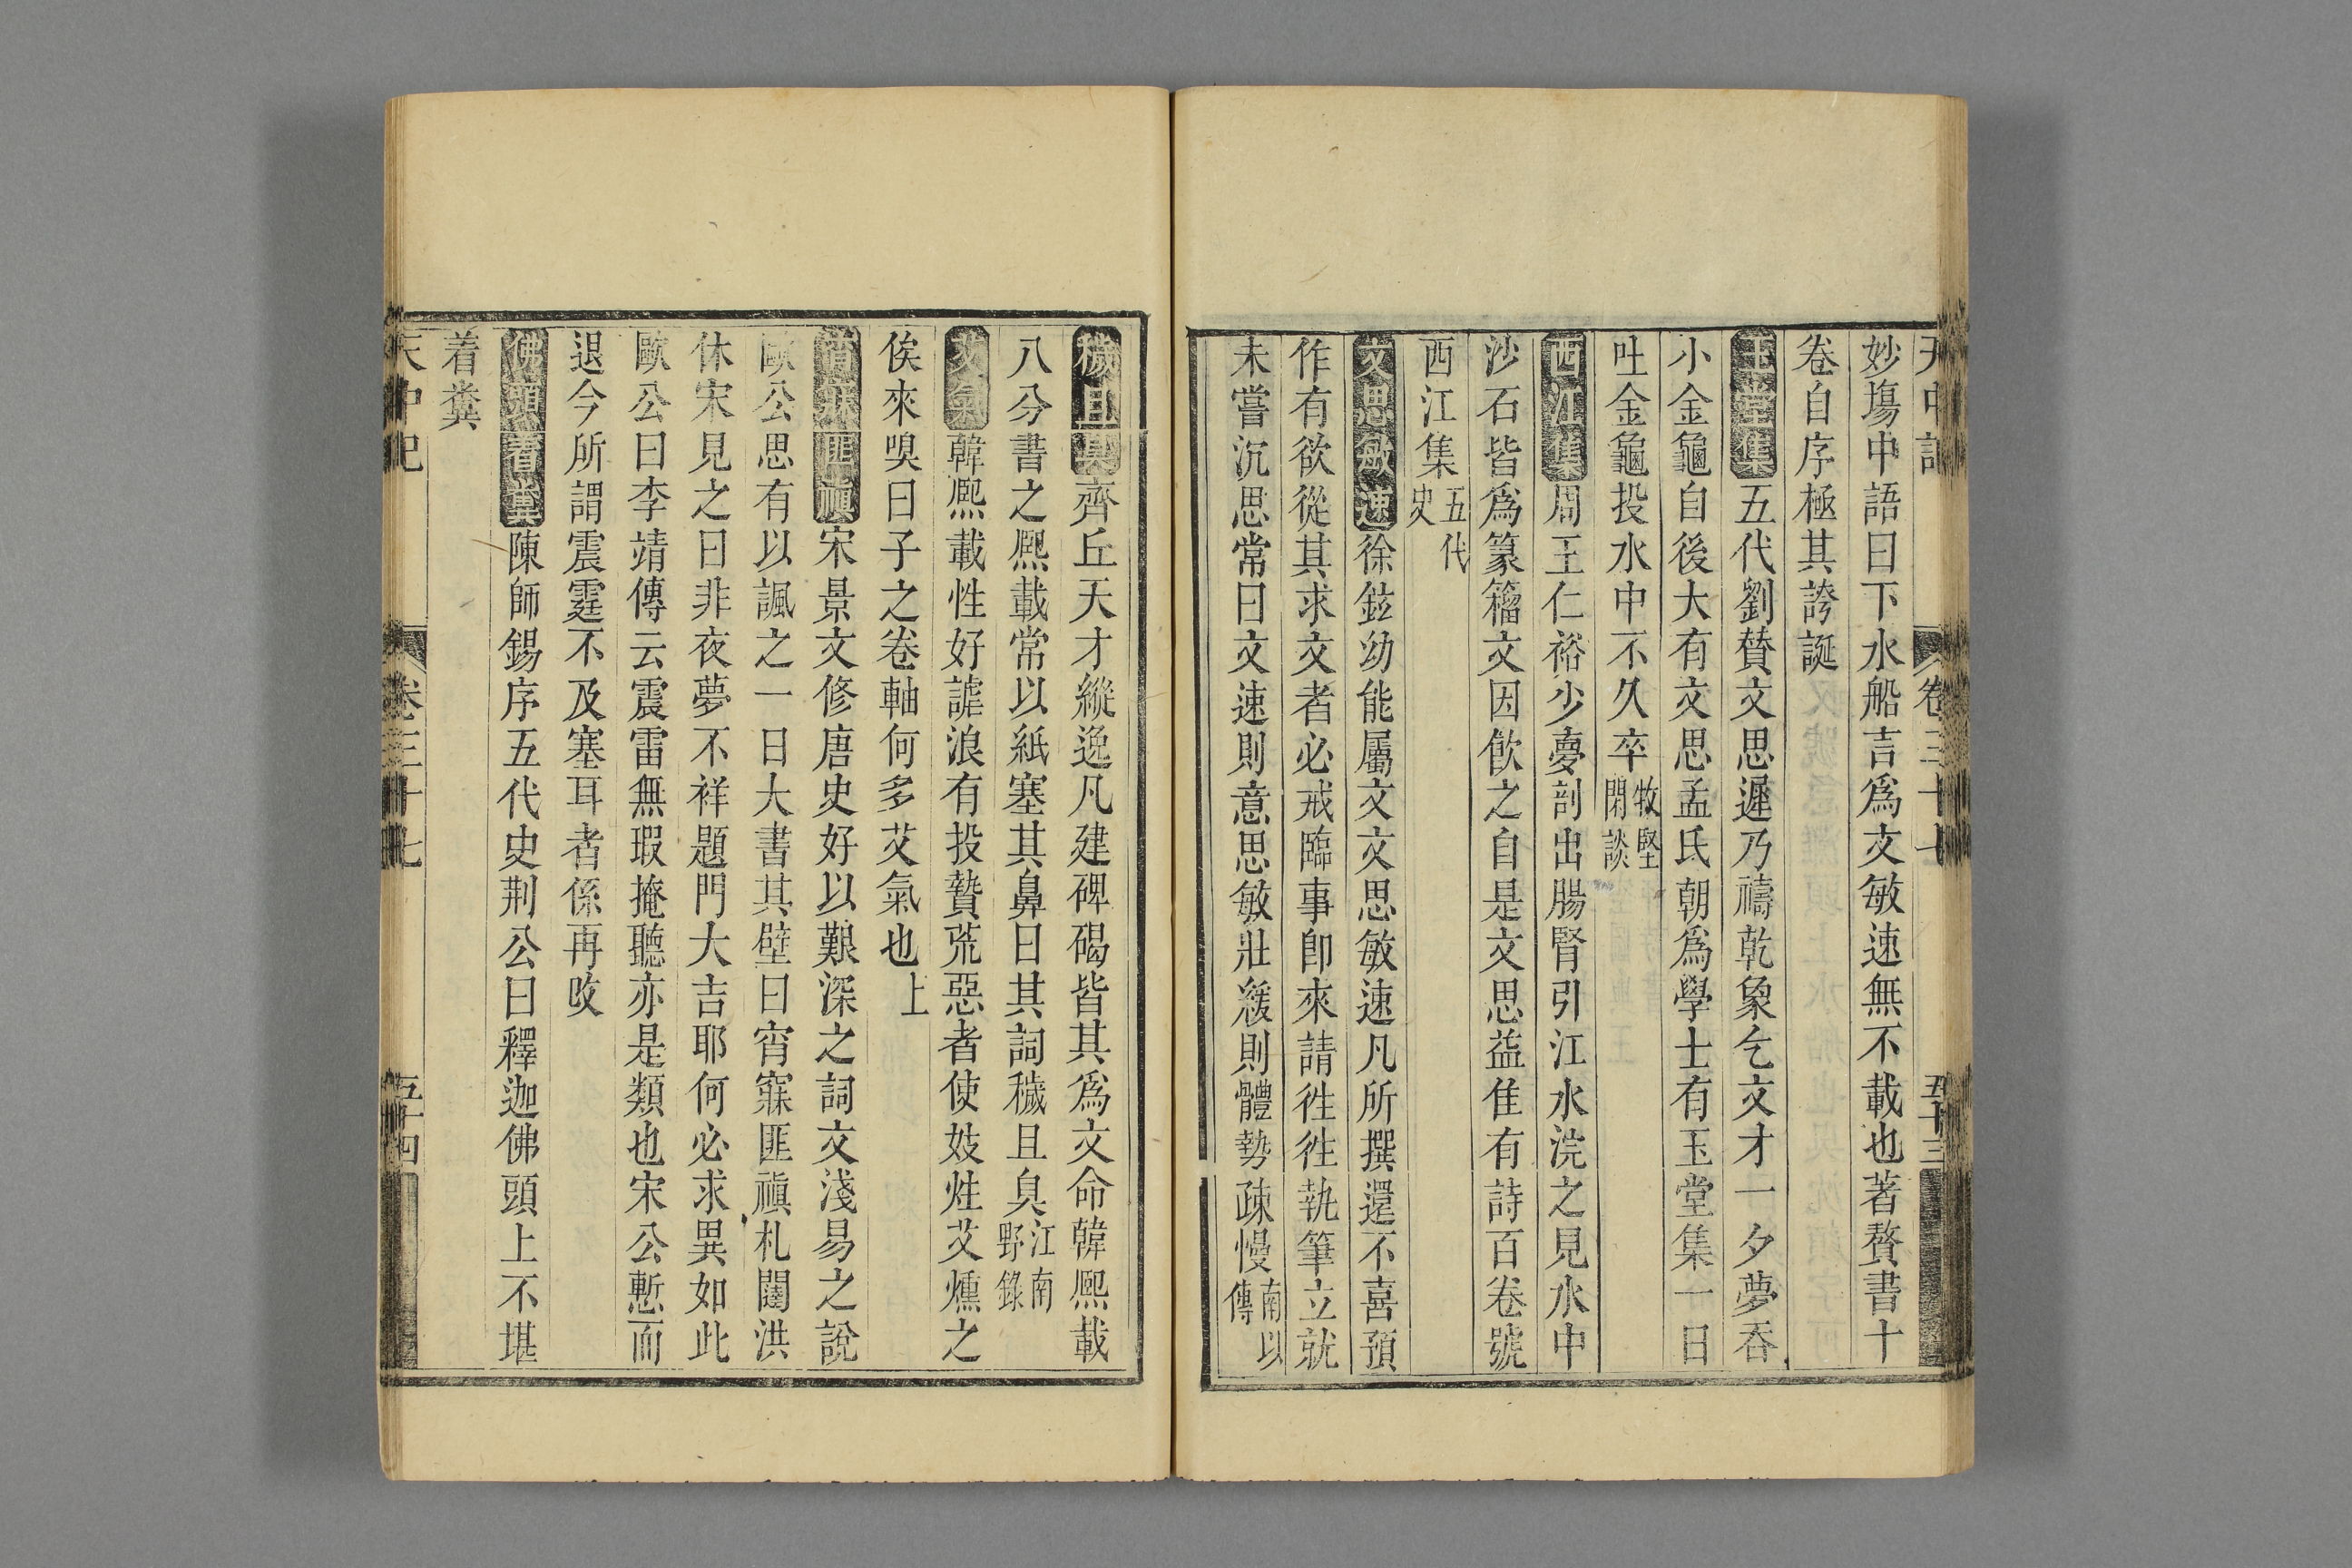 天中記 卷三十七 五十三
妙塲中語曰下水船言爲文敏速無不載也著贅書十
卷自序極其誇誕
玉堂集五代劉賛文思遲乃禱乾象乞文才一夕夢吞
小金龜自後大有文思孟氏朝爲學士有玉堂集一日
吐金龜投水中不久卒牧豎閑談
西江集周王仁裕少夢剖出腸腎引江水浣之見水中
沙石皆爲篆籀文因飮之自是文思益佳有詩百卷號
西江集五代史
文思敏速徐鉉幼能屬文文思敏速凡所撰述不喜預
作有欲從其求文者必戒臨事卽來請徃徃執筆立就
未嘗沉思常曰文速則意思敏壯緩則體勢疎慢南以傳
穢且臭齊丘天才縱逸凡建碑碣皆其爲文命韓熙載
八分書之熙載常以紙塞其鼻曰其詞穢且臭江南野錄
艾氣韓熙載性好謔浪有投贄荒惡者使妓炷艾燻之
俟來嗅曰子之卷軸何多艾氣也上
宵寐匪禎宋景文修唐史好以艱深之詞文淺易之說
歐公思有以諷之一日大書其壁曰宵寐匪禎札闥洪
休宋見之曰非夜夢不祥題門大吉耶何必求異如此
歐公曰李靖傳云震雷無暇掩聽亦是類也宋公慙而
退今所謂震霆不及塞耳者係再改
佛頭着糞陳師錫序五代史荆公曰釋迦佛頭上不堪
着糞
天中記 卷三十七 五十四